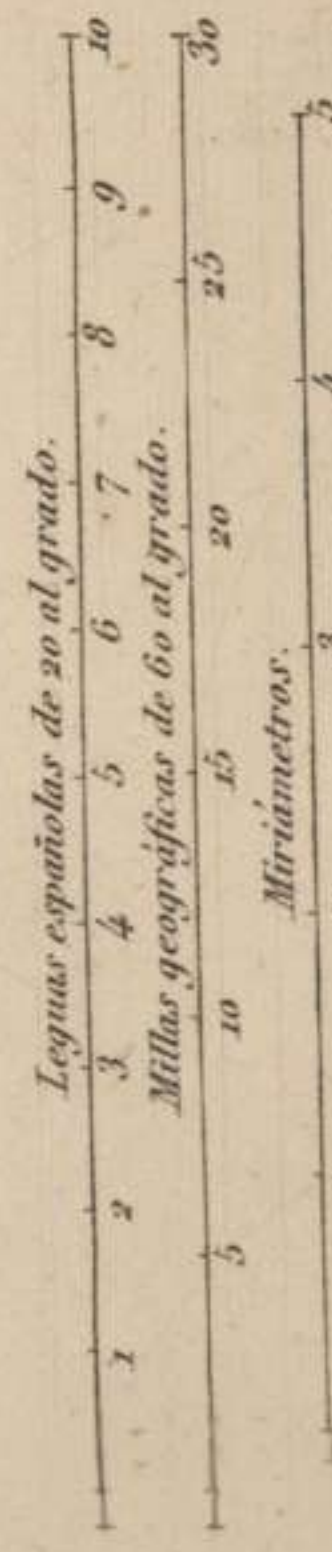 Leguas españolas de 20 al grado.
1 2 3 4 5 6 7 8 9 10
Millas geográficas de 60 al grado.
5 10 15 20 25 30
Miriámetros.
4 5